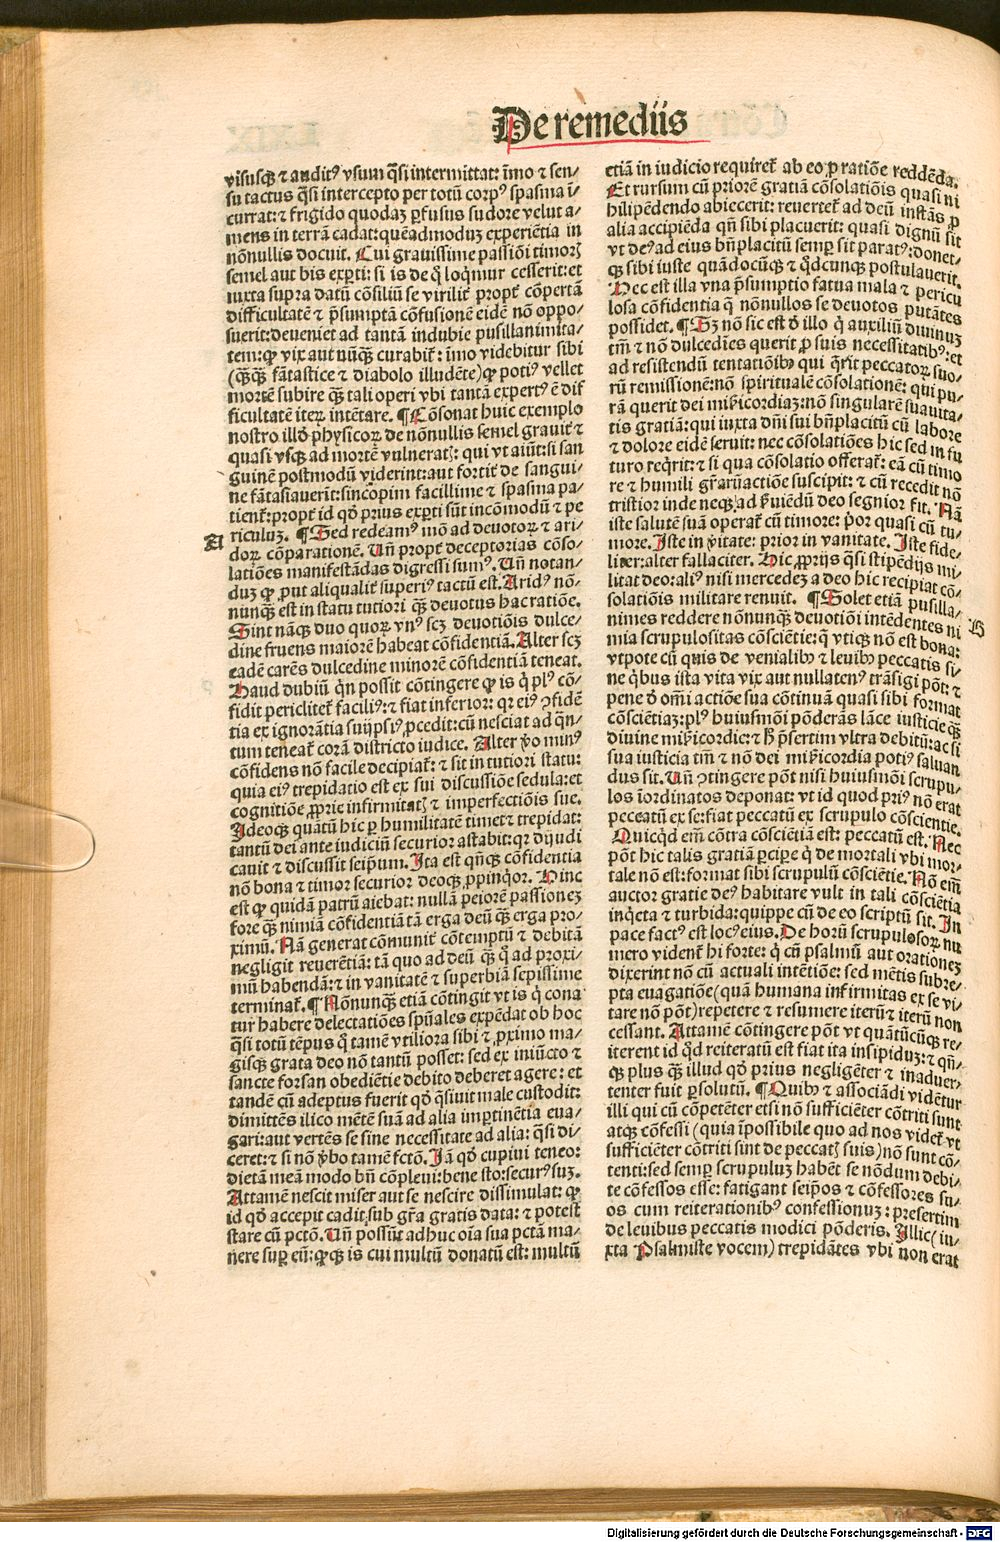 De remediis
visusq̃ ⁊ auditꝰ vsum q̃si intermittat: ĩmo ⁊ sen⸗
su tactus q̃si intercepto per totũ corpꝰ spasma ĩ⸗
currat: ⁊ frigido quodaꝫ ꝑfusus sudore velut a⸗
mens in terrã cadat: quẽadmoduꝫ experiẽtia in
nõnullis docuit. Cui grauissime passiõi timorꝫ
semel aut bis exꝑti: si is de q̃ loq̃mur cesserit: et
iuxta supra datũ cõsiliũ se virilit̃ propt̃ cõpertã
difficultatẽ ⁊ p̃sumptã cõfusionẽ eidẽ nõ oppo⸗
suerit: deueniet ad tantã indubie pusillanimita⸗
tem: ꝙ vix aut nũq̃ꝫ curabit̃: ĩmo videbitur sibi
(q̃ꝫq̃ꝫ fãtastice ⁊ diabolo illudẽte) ꝙ potiꝰ vellet
mortẽ subire q̃ꝫ tali operi vbi tantã expertꝰ ẽ dif
ficultatẽ iteꝝ intẽtare. ¶ Cõsonat huic exemplo
nostro illđ physicoꝝ de nõnullis semel grauit̃ ⁊
quasi vsq̃ꝫ ad mortẽ vulneratꝫ: qui vt aiũt: si san
guinẽ postmodũ viderint: aut fortit̃ de sangui⸗
ne fãtasiauerit: sincopim facillime ⁊ spasma pa⸗
tient̃: propt̃ id qđ prius exꝑti sũt incõmodũ ⁊ pe
A
riculuꝫ. ¶ Sed redeamꝰ mõ ad deuotoꝝ ⁊ ari⸗
doꝝ cõparationẽ. Uñ propt̃ deceptorias cõso⸗
latiões manifestãdas digressi sumꝰ. Uñ notan⸗
duꝫ ꝙ ꝓut aliqualit̃ superiꝰ tactũ est. Aridꝰ nõ⸗
nunq̃ꝫ est in statu tutiori q̃ꝫ deuotus hac ratiõe.
Sint nãq̃ꝫ duo quoꝝ vnꝰ scꝫ deuotiõis dulce⸗
dine fruens maiorẽ habeat cõfidentiã. Alter scꝫ
eadẽ carẽs dulcedine minorẽ cõfidentiã teneat.
Haud dubiũ q̃n possit cõtingere ꝙ is q̃ plꝰ cõ⸗
fidit periclitet̃ faciliꝰ: ⁊ fiat inferior: qꝛ eiꝰ ↄfidẽ
tia ex ignorãtia suijpsiꝰ ꝓcedit: cũ nesciat ad q̃n⸗
tum teneat̃ corã districto iudice. Alter ṽo minꝰ
cõfidens nõ facile decipiat̃: ⁊ sit in tutiori statu:
quia eiꝰ trepidatio est ex sui discussiõe sedula: et
cognitiõe ꝓprie infirmitatꝫ ⁊ imperfectiõis sue.
Ideoq̃ꝫ quãtũ hic ꝑ humilitatẽ timet ⁊ trepidat:
tantũ dei ante iudiciũ securior astabit: qꝛ dijudi
cauit ⁊ discussit seip̃um. Ita est q̃nq̃ꝫ cõfidentia
nõ bona ⁊ timor securior deoq̃ꝫ ꝓpinq̃or. Hinc
est ꝙ quidã patrũ aiebat: nullã peiorẽ passionez
fore q̃ꝫ nimiã cõfidentiã tã erga deũ q̃ꝫ erga pro⸗
ximũ. Nã generat cõmunit̃ cõtemptũ ⁊ debitã
negligit reuerẽtiã: tã quo ad deũ q̃ꝫ q̃ ad proxi⸗
mũ habendã: ⁊ in vanitatẽ ⁊ superbiã sepissime
terminat̃. ¶ Nõnunq̃ꝫ etiã cõtingit vt is q̃ cona
tur habere delectatiões spũales expẽdat ob hoc
q̃si totũ tẽpus q̃ tamẽ vtiliora sibi ⁊ ꝓximo ma⸗
gisq̃ꝫ grata deo nõ tantũ posset: sed ex iniũcto ⁊
sancte forsan obediẽtie debito deberet agere: et
tandẽ cũ adeptus fuerit qđ q̃siuit male custodit:
dimittẽs ilico mẽtẽ suã ad alia imꝑtinẽtia eua⸗
gari: aut vertẽs se sine necessitate ad alia: q̃si di⸗
ceret: ⁊ si nõ ṽbo tamẽ fctõ. Iã qđ cupiui teneo:
dietã meã modo bñ cõpleui: bene sto: securꝰ suꝫ.
Attamẽ nescit miser aut se nescire dissimulat: ꝙ
id qđ accepit cadit, sub gr̃a gratis data: ⁊ potest
stare cũ pctõ. Uñ possũt adhuc oĩa sua pctã ma⸗
nere suꝑ eũ: ꝙꝙ is cui multũ donatũ est: multũ
etiã in iudicio requiret̃ ab eo ꝓ ratiõe reddẽda.
Et rursum cũ priorẽ gratiã cõsolatiõis quasi ni
hilipẽdendo abiecerit: reuertet̃ ad deũ instãs ꝓ
alia accipiẽda q̃n sibi placuerit: quasi dignũ sit
vt deꝰ ad eius bñplacitũ semꝑ sit paratꝰ: donet⸗
q̃ꝫ sibi iuste quãdocũq̃ꝫ ⁊ q̃dcunq̃ꝫ postulauerit.
Hec est illa vna p̃sumptio fatua mala ⁊ pericu
losa cõfidentia q̃ nõnullos se deuotos putãtes
possidet. ¶ Sꝫ nõ sic est đ illo q̃ auxiliũ diuinuꝫ
tm̃ ⁊ nõ dulcedĩes querit ꝓ suis necessitatibꝰ: et
ad resistendũ tentatiõibꝰ qui q̃rit peccatoꝝ suo⸗
rũ remissionẽ: nõ spiritualẽ cõsolationẽ: qui pu⸗
rã querit dei mĩcordiaꝫ: nõ singularẽ suauita⸗
tis gratiã: qui iuxta dñi sui bñplacitũ cũ labore
⁊ dolore eidẽ seruit: nec cõsolatiões hic sed in fu
turo req̃rit: ⁊ si qua cõsolatio offerat̃: eã cũ timo
re ⁊ humili gr̃aꝝ actiõe suscipit: ⁊ cũ recedit nõ
tristior inde neq̃ꝫ ad ẜuiẽdũ deo segnior fit. Nã
iste salutẽ suã operat̃ cũ timore: ṗor quasi cũ tu⸗
more. Iste in ṽitate: prior in vanitate. Iste fide⸗
liter: alter fallaciter. Hic ꝓprijs q̃si stipẽdijs mi⸗
litat deo: aliꝰ nisi mercedeꝫ a deo hic recipiat cõ⸗
solatiõis militare renuit. ¶ Solet etiã pusilla⸗
nimes reddere nõnunq̃ꝫ deuotiõi intẽdentes ni
B
mia scrupulositas cõsciẽtie: q̃ vtiq̃ꝫ nõ est bona:
vtpote cũ quis de venialibꝰ ⁊ leuibꝰ peccatis si⸗
ne q̃bus ista vita vix aut nullatenꝰ trãsigi põt: ⁊
pene đ om̃i actiõe sua cõtinuã quasi sibi format
cõsciẽtiaꝫ: plꝰ huiusmõi põderãs lãce iusticie q̃ꝫ
diuine mĩcordie: ⁊ ħ p̃sertim vltra debitũ: ac si
sua iusticia tm̃ ⁊ nõ dei mĩcordia potiꝰ saluan
dus sit. Uñ ↄtingere põt nisi huiusmõi scrupu⸗
los ĩordinatos deponat: vt id quod priꝰ nõ erat
peccatũ ex se: fiat peccatũ ex scrupulo cõscientie.
Quicq̃d em̃ cõtra cõsciẽtiã est: peccatũ est. Nec
põt hic talis gratiã ꝑcipe q̃ de mortali vbi mor⸗
tale nõ est: format sibi scrupulũ cõsciẽtie. Nõ em̃
auctor gratie deꝰ habitare vult in tali cõsciẽtia
inq̃eta ⁊ turbida: quippe cũ de eo scriptũ sit. In
pace factꝰ est locꝰ eius. De horũ scrupulosoꝝ nu
mero vident̃ hi forte: q̃ cũ psalmũ aut orationeꝫ
dixerint nõ cũ actuali intẽtiõe: sed mẽtis subre⸗
pta euagatiõe (quã humana infirmitas ex se vi⸗
tare nõ põt) repetere ⁊ resumere iterũ ⁊ iterũ non
cessant. Attamẽ cõtingere põt vt quãtũcũq̃ꝫ re⸗
iterent id q̃d reiteratũ est fiat ita insipiduꝫ: ⁊ q̃ñ⸗
q̃ꝫ plus q̃ꝫ illud qđ prius negligẽter ⁊ inaduer⸗
tenter fuit ꝑsolutũ. ¶ Quibꝰ ⁊ associãdi vidẽtur
illi qui cũ cõpetẽter etsi nõ sufficiẽter cõtriti sunt
atq̃ꝫ cõfessi (quia ĩpossibile quo ad nos videt̃ vt
sufficiẽter cõtriti sint de peccatꝫ suis) nõ sunt cõ⸗
tenti: sed semꝑ scrupuluꝫ habẽt se nõdum debi⸗
te cõfessos esse: fatigant seip̃os ⁊ cõfessores su⸗
os cum reiterationibꝰ confessionuꝫ: presertim
de leuibus peccatis modici põderis. Illic (iu⸗
xta Psalmiste vocem) trepidãtes vbi non erat
Digitalisierung gefördert durch die Deutsche Forschungsgemeinschaft - DFG